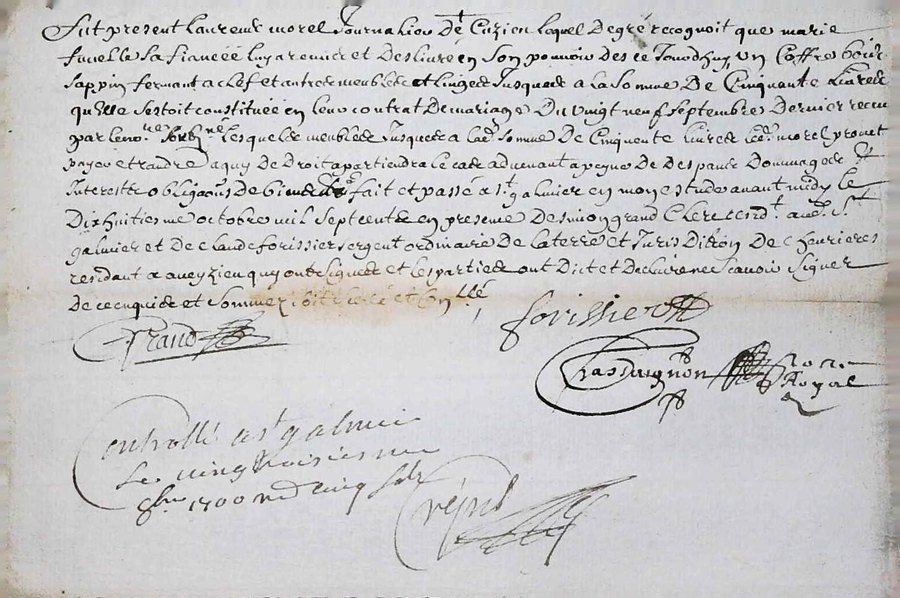 Fut present Laurens morel Journalier De Cuzieu loquel De gré recognoit que marie
fuelle sa fiancée luy a remiet et Deslivré en son pouvoir Des ce Jourdhuy un Coffre bois
sappin fermant a clef et autres meubles et linges Jusques a la somme De Cinquante livres
qu'elle sestoit constituée en leur contrat De mariage Du vingt neuf septembre Dernier receu
par le no.re lesquels meubles Jusques a lad. somme De Cinquente livres led. morel promet
payer et randre a quy De Droit apartiendra le cas advenant a peyne De Despans Dommages et
Interests obliga~ons De biens fait et passé a S.t galmier en mon estude avant midy le
Dixhuitiesme octobre mil sept cents en presence De simon grand Clerc resid.t aud. S.t
galmier et De claude forissier sergent ordinaire De la terre et Jurisdi~on De Chevrieres
residant a aveyzieu quy ont signés et les parties ont Dict et Declairé ne scavoir signer
De ce enquis et sommez
Grand
forissier
Chassaignon no.re
Royal
Controllé a st galmier
le vingtroisiesme
8bre 1700 cinq solz
Crépul